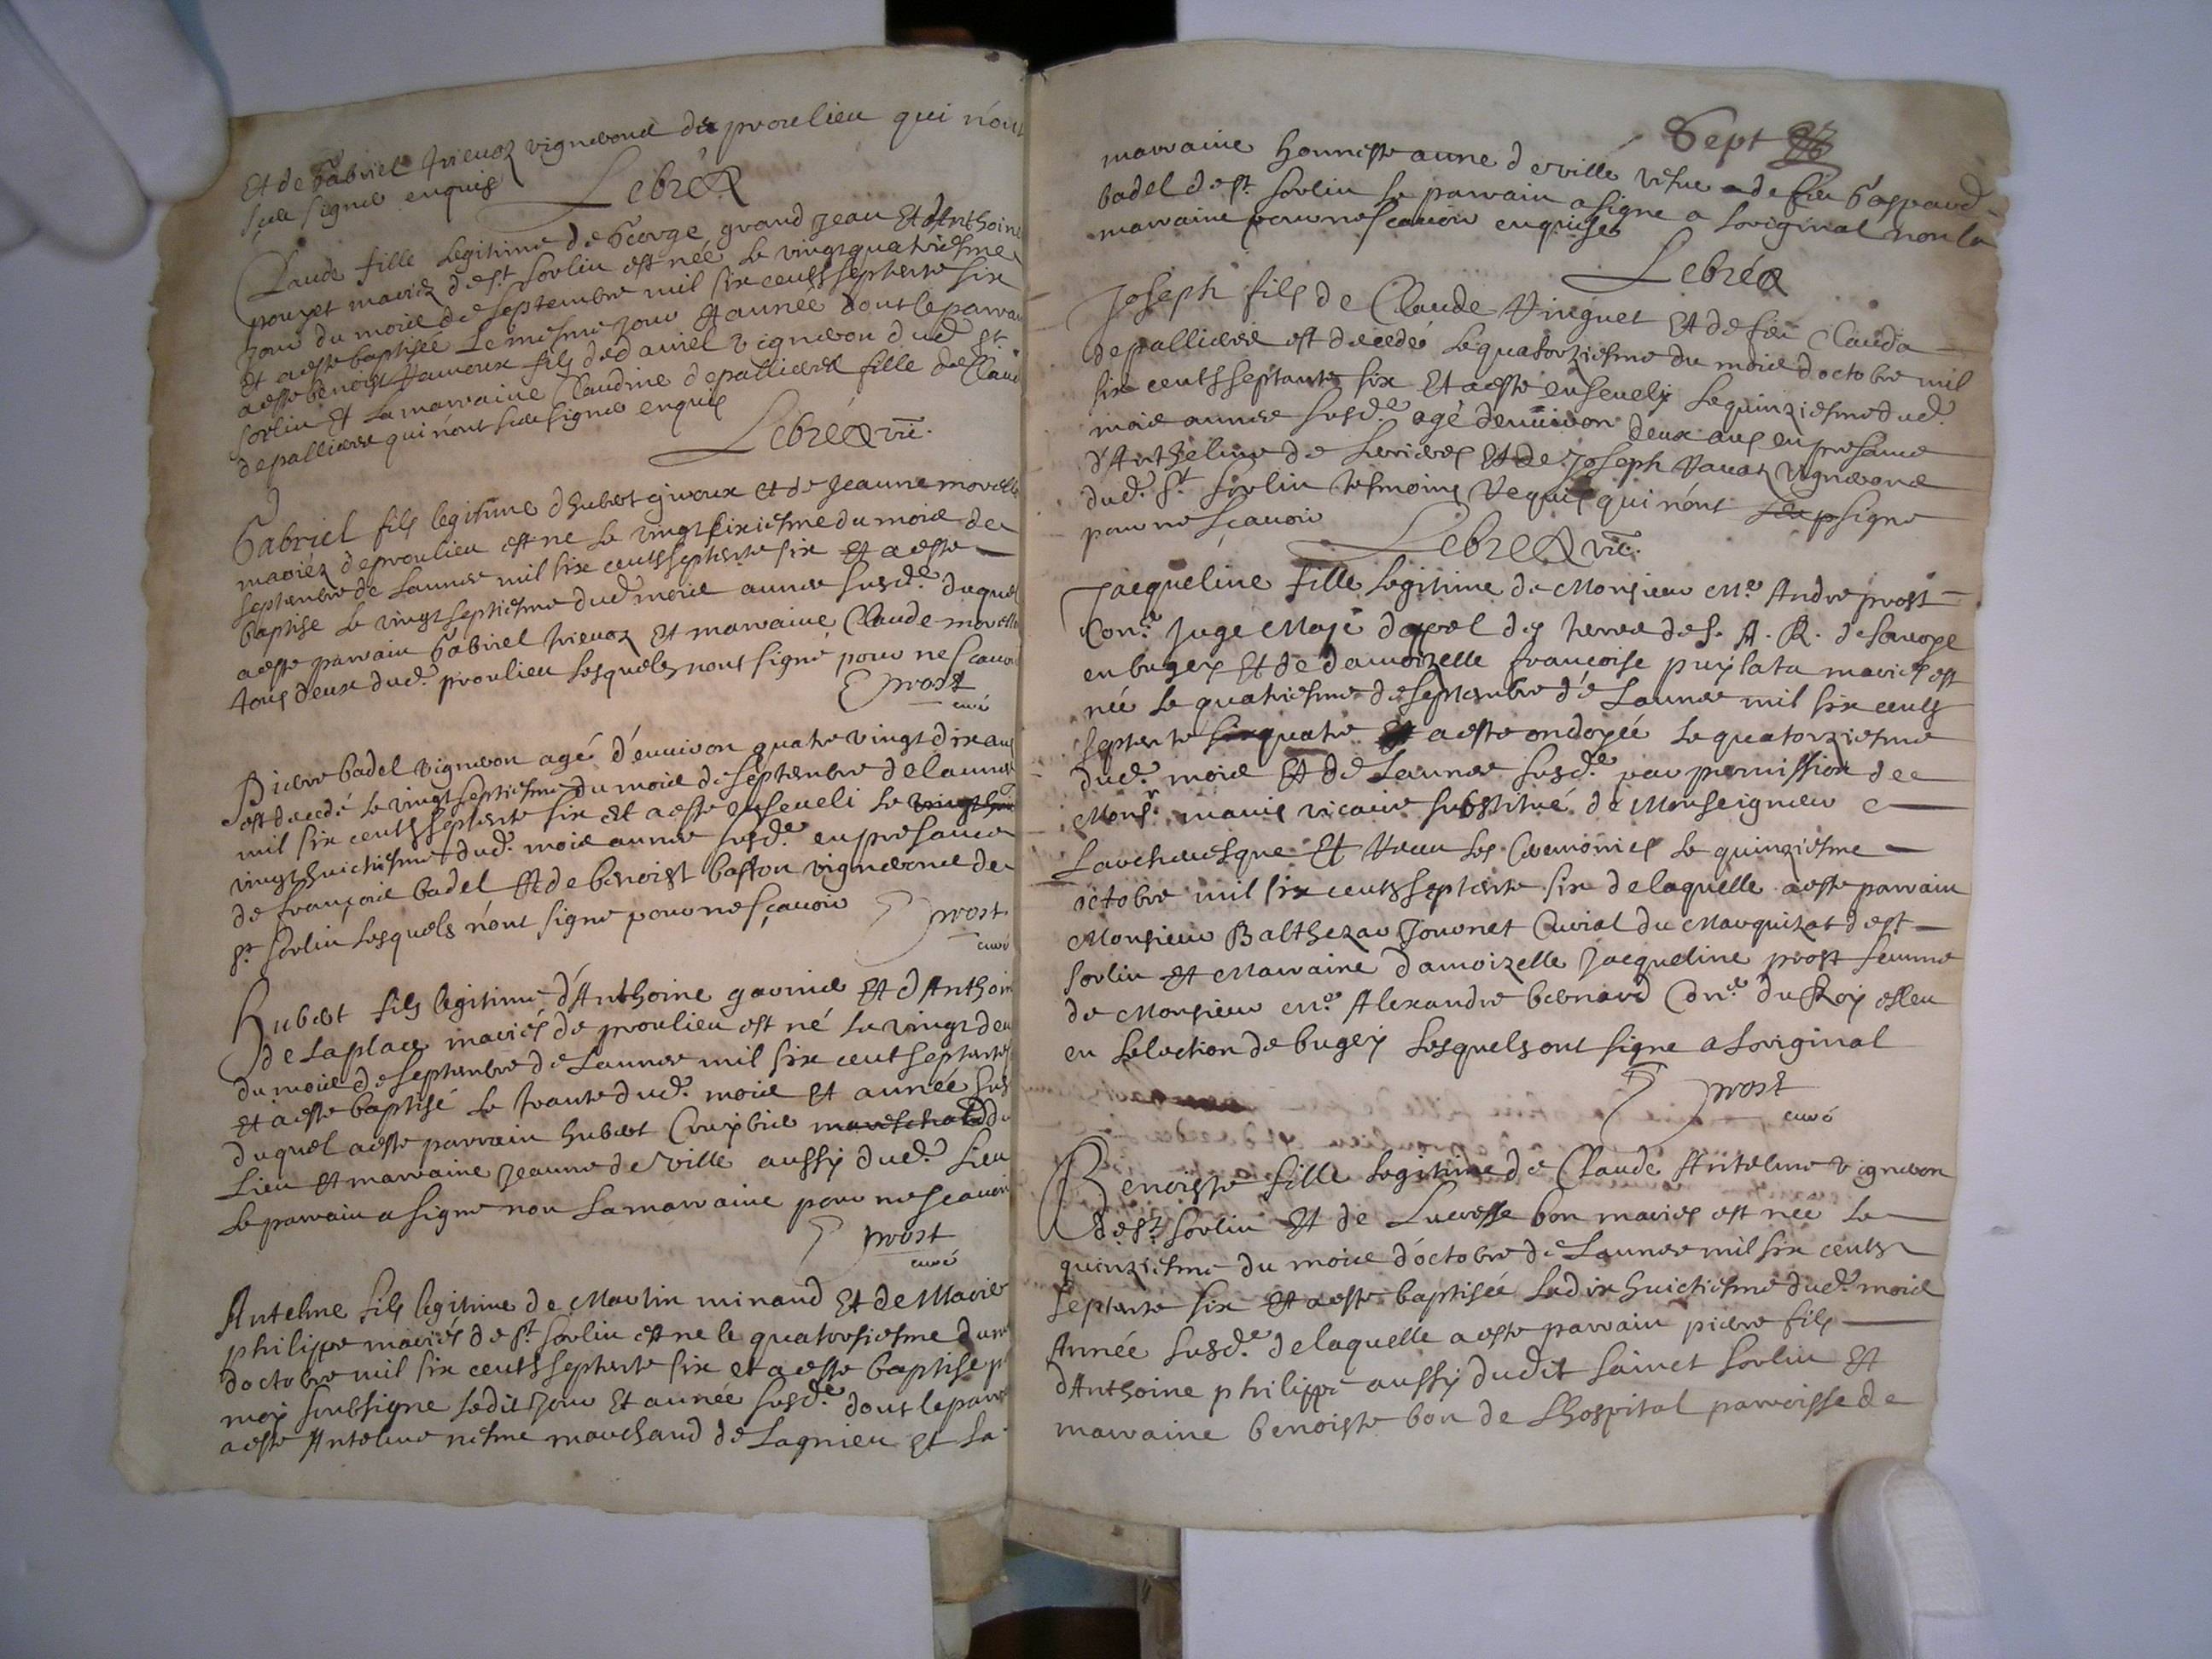 Et de Gabriel trievoz vignerons de proulieu qui n'ont
sceu signer enquis
Lebrea
Claude fille legitime de George grand Jean Et d'Anthoine
pouget mariez de st. sorlin est née le vingt quatriesme
jour du mois de septembre mil six cents septente six
Et a esté baptisée Le mesme jour Et année dont le parrain
a esté benoist fils de daniel vigneron dud. st.
sorlin Et La marraine Claudine depalliere fille de Claud
depalliere qui n'ont sceu signer enquis
Lebrea vic.
Gabriel fils legitime d'hubert giroux et de Jeanne morelle
mariéz de proulieu est ne le vingt sixiesme du mois de
septembre de L'année mil six cents septente six et a esté
baptise le vingt septiesme dud. mois année susd.e duquel
a esté parrain Gabriel trievoz Et marraine Claude morelle
tous deux dud. proulieu Lesquels n'ont signé pour ne scavoir
prost
curé
Pierre badel vigneron agé d'environ quatre vingt dix ans
est decedé le vingt septiesme du mois de septembre de l'année
mil six cents septente six et a esté enseveli le
vingt huictiesme dud. mois année susd.e en presance
de françois badel Et de benoist baston vignerons de
st. sorlin Lesquels n'ont signe pour ne sçavoir
prost
curé
Hubert fils legitime d'Anthoine garnier Et d'Anthoin
de Laplace mariés de proulieu est né le vingt deu
du mois de septembre de L'année mil six cent septente
Et a esté baptisé le trante dud. mois Et année sus
duquel a esté parrain hubert Cruybie mareschal du
Lieu Et marraine Jeanne deville aussy dud. Lieu
Le parrain a signe non La marraine pour ne scavoir
prost
curé
Antelme fils legitime de Martin minand Et de Marie
philippe mariés de st. sorlin est ne le quatorsiesme du m
d'octobre mil six cents septente six et a esté baptise p
moy soubsigne Ledit jour Et année susd.e dont le parr
a esté Antelme marchand de Lagnieu Et La
Sept
marraine honneste anne deville vefve de feu Gaspard
badel de st. sorlin Le parrain a signe a L'original non la
marraine pour ne scavoir enquise
Lebrea
Joseph fils de Claude Vinguet Et de feu Clauda
depalliere est decedé Le quatorziesme du mois d'octobre mil
six cents septante six Et a esté ensevely Le quinziesme dud.
mois année susd.e agé d'environ deux ans en presance
d'Anthelme de Et de Joseph vignerons
dud. st. sorlin tesmoins requis qui n'ont signe
pour ne sçavoir
Lebrea vic.
Jacqueline fille Legitime de Monsieur Me. Andre prost
Con.er Juge Maje d'apel des terres de S. A. R. de savoye
en bugey Et de damoizelle françoise puylata mariés est
née Le quatriesme de septembre de L'année mil six cents
septente quatre Et a esté ondoyée Le quatorziesme
dud. mois Et de L'année susd.e par permission de
Monsr. manis vicaire substitué de Monseigneur
L'archevesque Et receu Les Ceremonies Le quinziesme
octobre mil six cents septente six de laquelle a esté parrain
Monsieur Balthezar Jouvnet Curial du Marquizat de st.
sorlin Et Marraine damoizelle Jacqueline prost femme
de Monsieur Me. Alexandre bernard Con.er du Roy esleu
en L'election de bugey Lesquels ont signe a L'original
prost
curé
Benoiste fille Legitime de Claude Antelme vigneron
de st. sorlin Et de Lucresse bon mariés est née Le
quinziesme du mois d'octobre de L'année mil six cents
septente six Et a esté baptisée Le dix huictiesme dud. mois
Année susd.e de laquelle a esté parrain pierre fils
d'Anthoine philippe aussy dudit sainct sorlin Et
marraine benoiste bon de L'hospital parroisse de